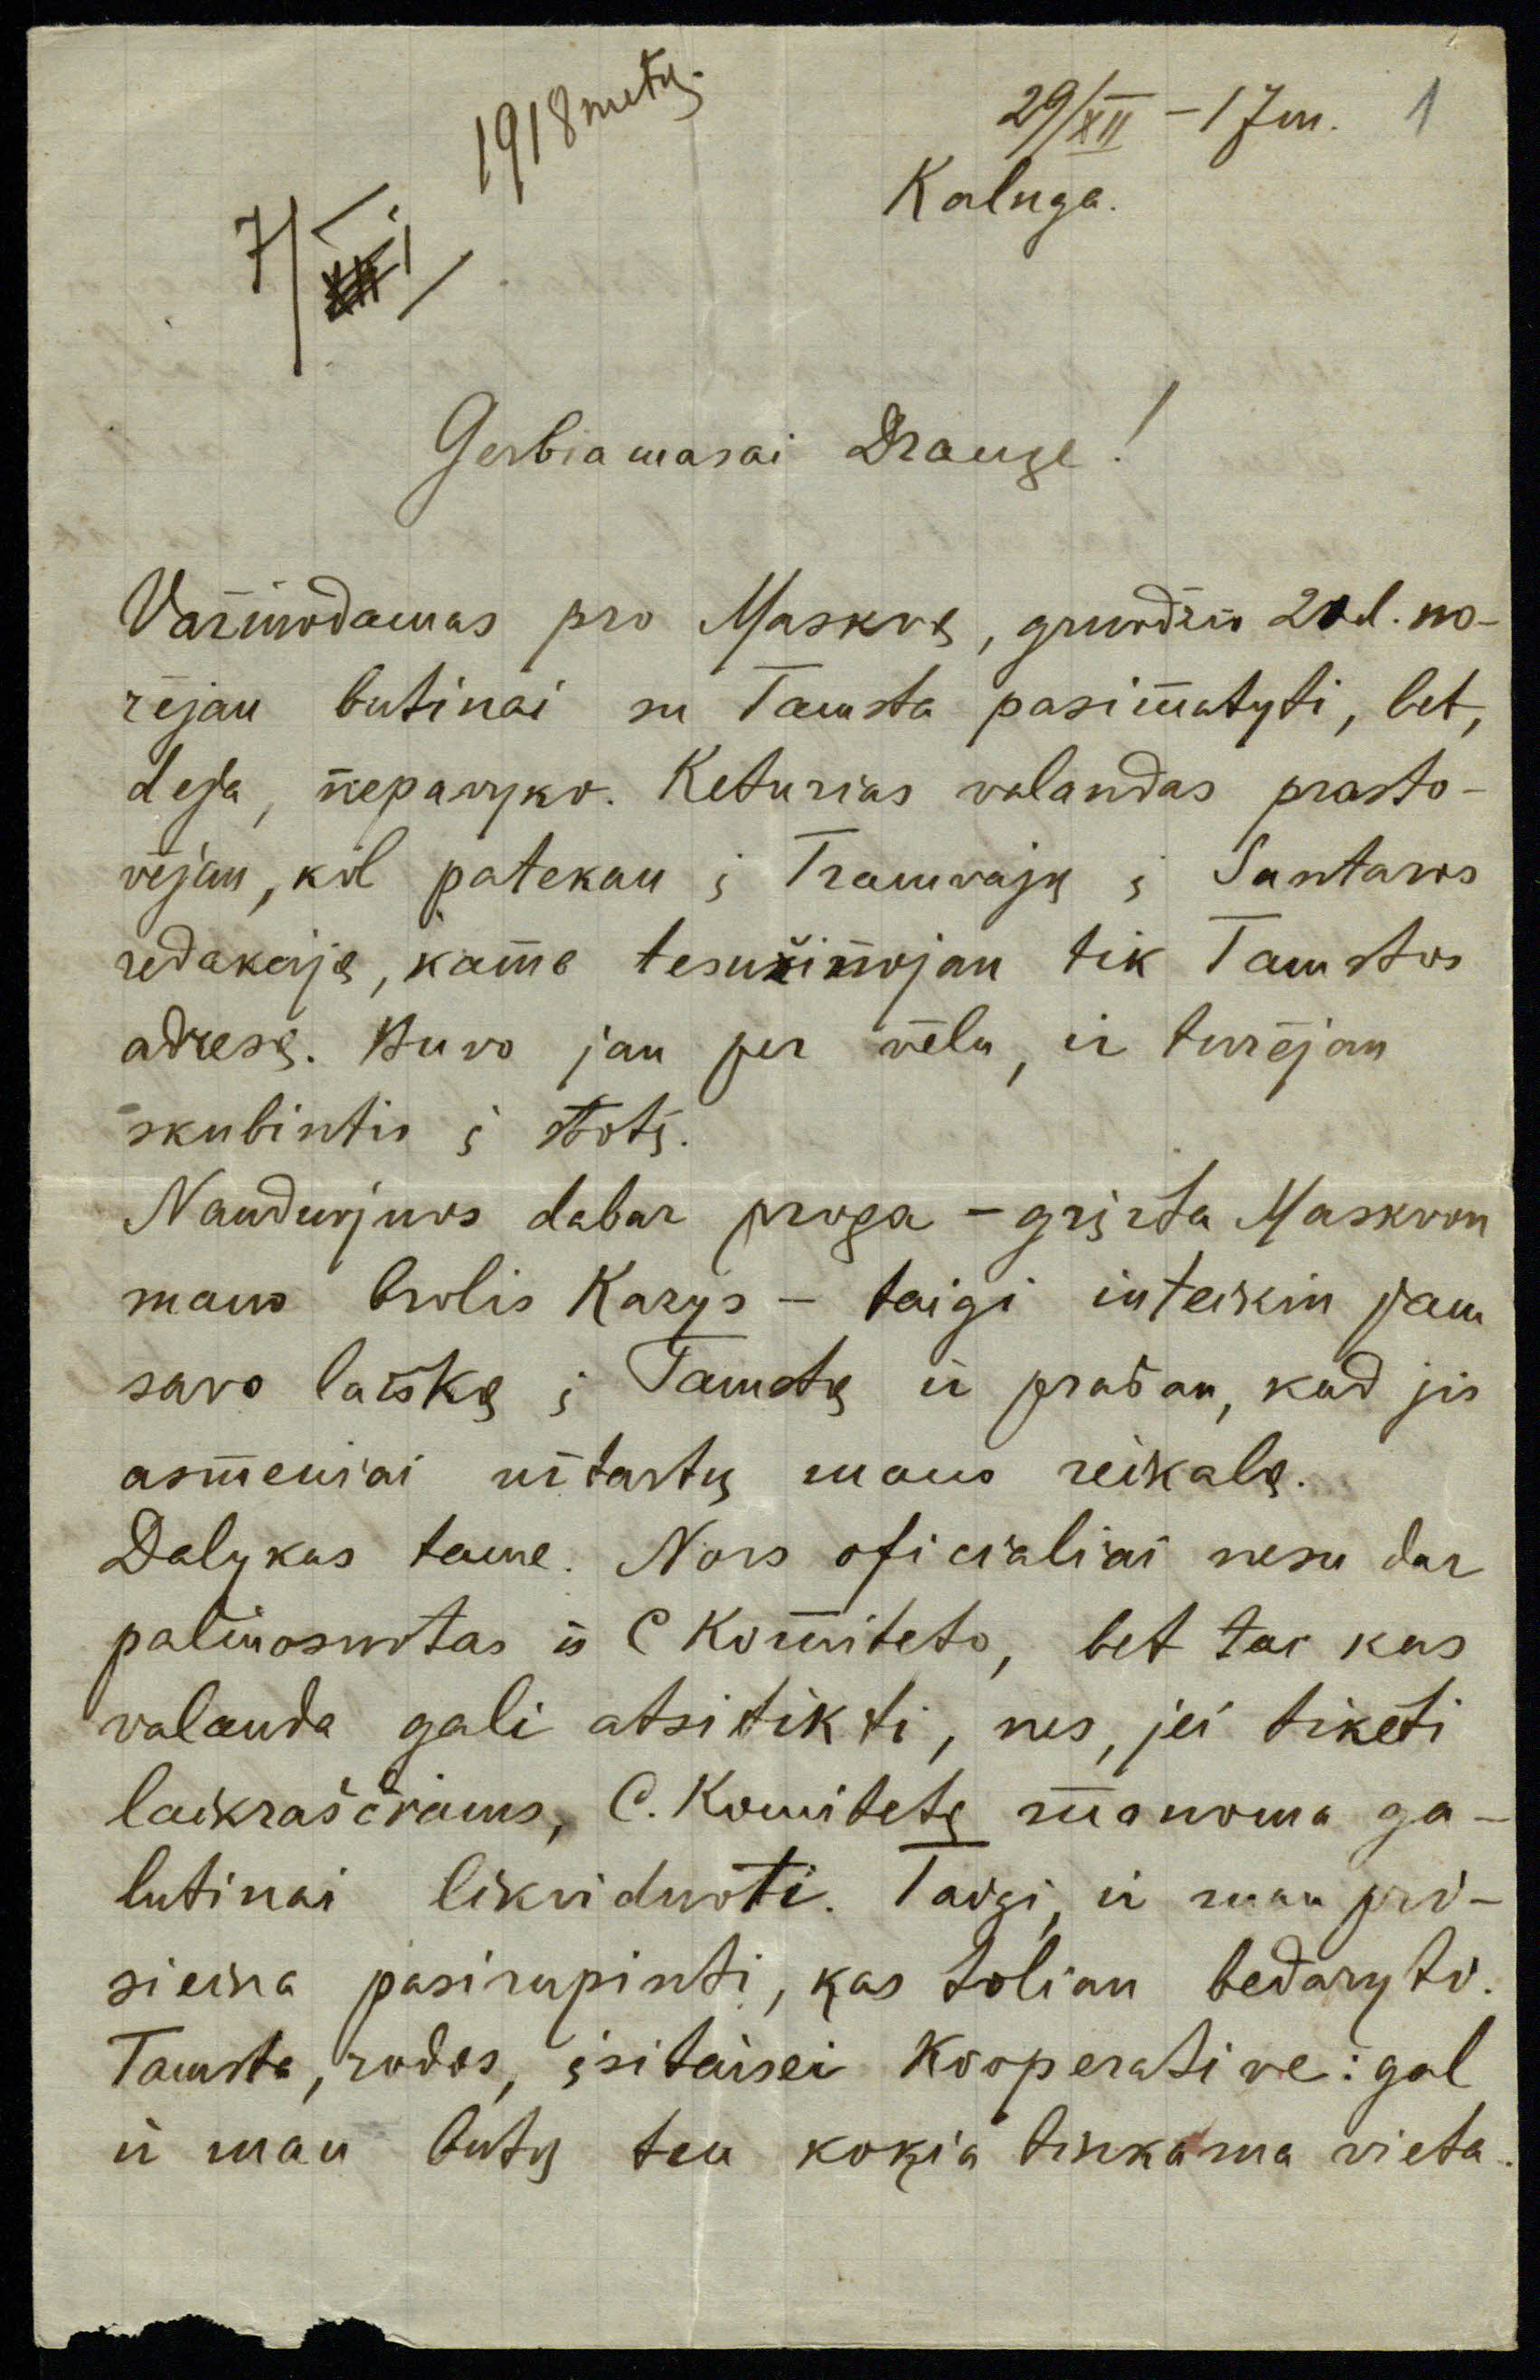 1918 metų.
29/XII – 17 m. 1
Kaluga.
7/I
Gerbiamasai Drauge!
Važiuodamas pro Maskvą, gruodžio 20 d. no-
rėjau butinai su Tamsta pasimatyti, bet,
deja, nepavyko. Keturias valandas prasto-
vėjau, kol patekau į Tramvajų į Santaros
redakciją, kame tesužinojau tik Tamstos
adresą. Buvo jau per vėlu, ir turėjau
skubintis į stotį.
Nauduojuos dabar proga – grįžta Maskvon
mano brolis Kazys – taigi inteikiu jam
savo laišką į Tamstą ir prašau, kad jis
asmeniai užtartų mano reikalą.
Dalykas tame. Nors oficialiai nesu dar
paliuosuotas iš C Komiteto, bet tai kas
valanda gali atsitikti, nes, jei tikėti
laikraščiams, C. Komitetą manoma ga-
lutinai likviduoti. Taigi, ir man pri-
sieina pasirupinti, kas toliau bedaryti.
Tamsta, rodos, įsitaisei Kooperative: gal
ir man butų ten kokia tinkama vieta.